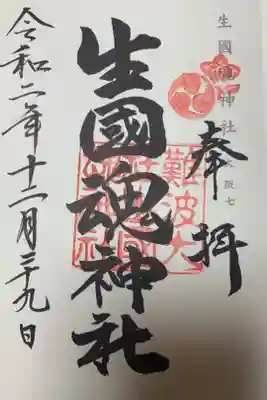 生國魂神社
奉拝
生國魂神社
難波大
社生國
令和二年十二月二十九日